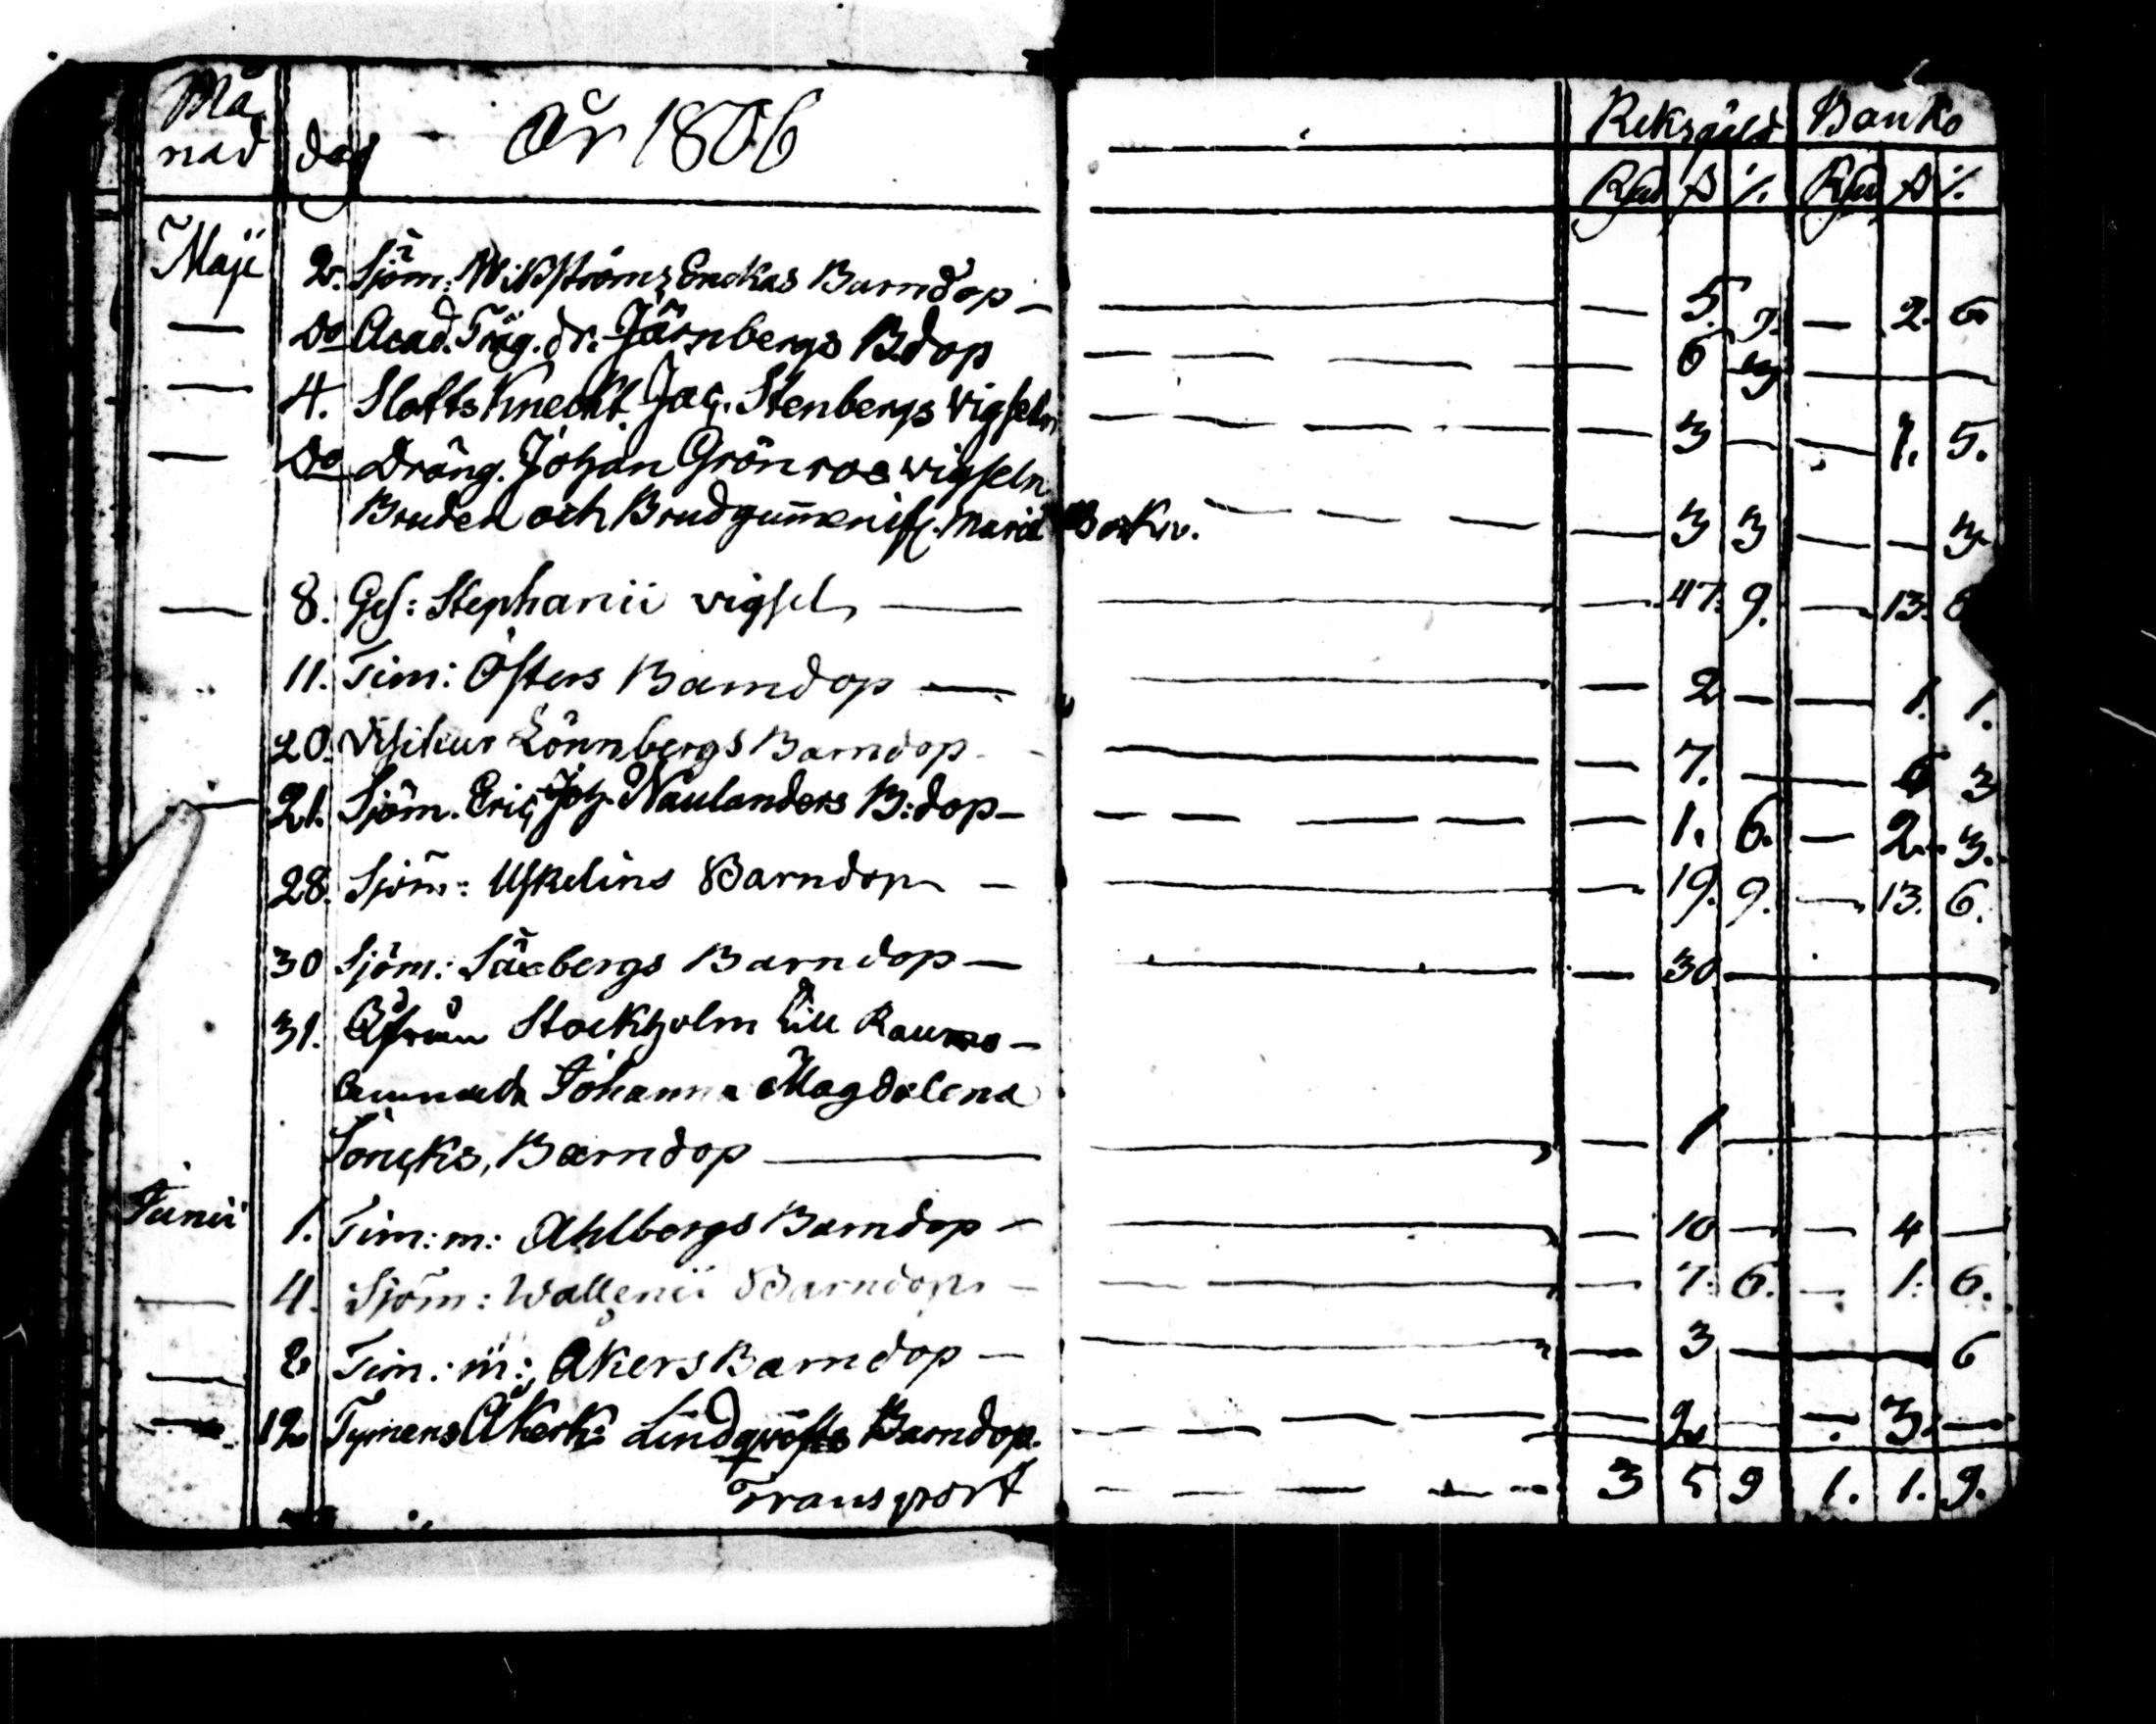 Månad dag År 1806 Riksgäld Banko
Rdr ß /. Rdr ß /.
Maji 2. Sjöm: Wikströms Enckas Barndop — — 5. 7. — 2. 6
— Do Acad. Träg. dr. Järnbergs B.dop — 6 3 —
— 4. Slotts Knecht. Jac. Stenbergs vigseln — 3 — — 1. 5.
— Do Dräng. Johan Grönroos vigseln
Bruden och Brudgummen 3 3 — — 3
— 8. Gef: Stephanii vigsel — — 47. 9. — 13.
11. Tim: Östers Barndop — — 2 — — 1. 1.
20. Visiteur Lönnbergs Barndop — 7. — 3
— 21. Sjöm. Eric Joh. Naulanders B:dop — — 1. 6. — 2. 3.
28. Sjöm: Uskelins Barndop — — 19. 9. — 13. 6.
30 Sjöm: Säxbergs Barndop — — 30 —
31. Ifrån Stockholm till Raumo —
Johanna Magdalena
Barndop — — 1 —
Junii 1. Tim: m: Ahlbergs Barndop — — 10 — — 4 —
— 4. Sjöm: Wallenii Barndop — — 7. 6. — 1. 6.
— 8 Tim: m: Åkers Barndop — — 3 — 6
— 12 Lindqvists Barndop. — 2 — — 3. —
Transport — 3 5 9 1. 1. 9.